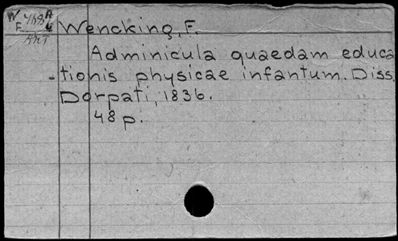 Wencking, F.
Adminicula quaedam educa
tionis physicae infantum. Diss.
Dorpati, 1836.
48 p.